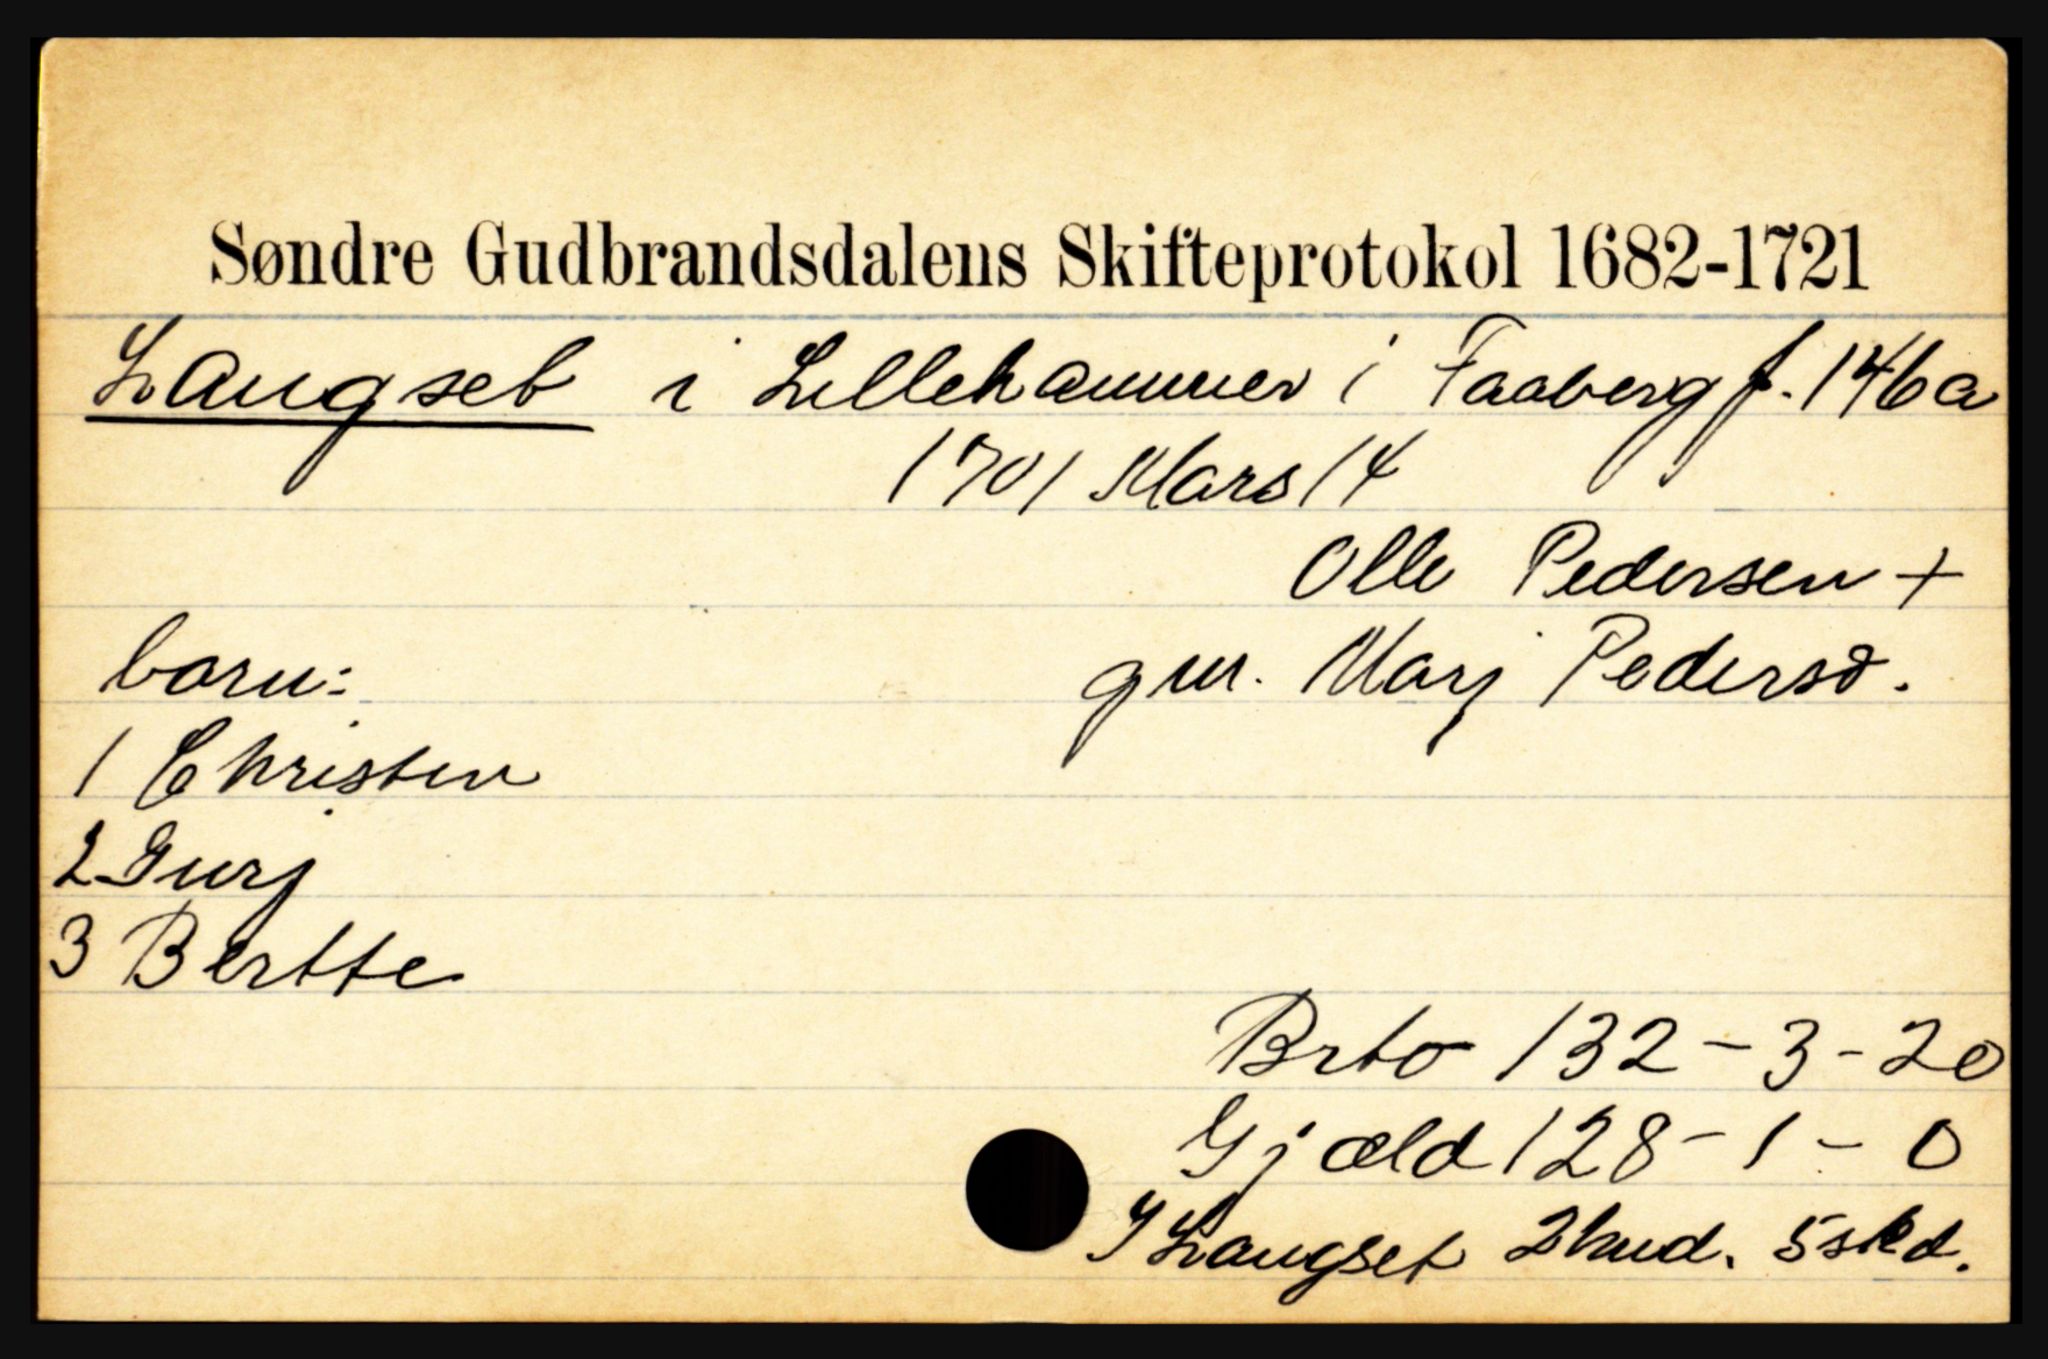 Søndre Gudbrandsdalens Skifteprotokol 1682-1721
Langset i Lillehammer i Faaberg f. 146a
1701 Mars 14
Olle Pedersen +
born: gm. Marj Pedersd.
1 Christen
2 Gurj
3 Bertte
Brto 132 - 3 - 20
Gjæld 128 - 1 - 0
I Langset 2 hud. 5 skd.